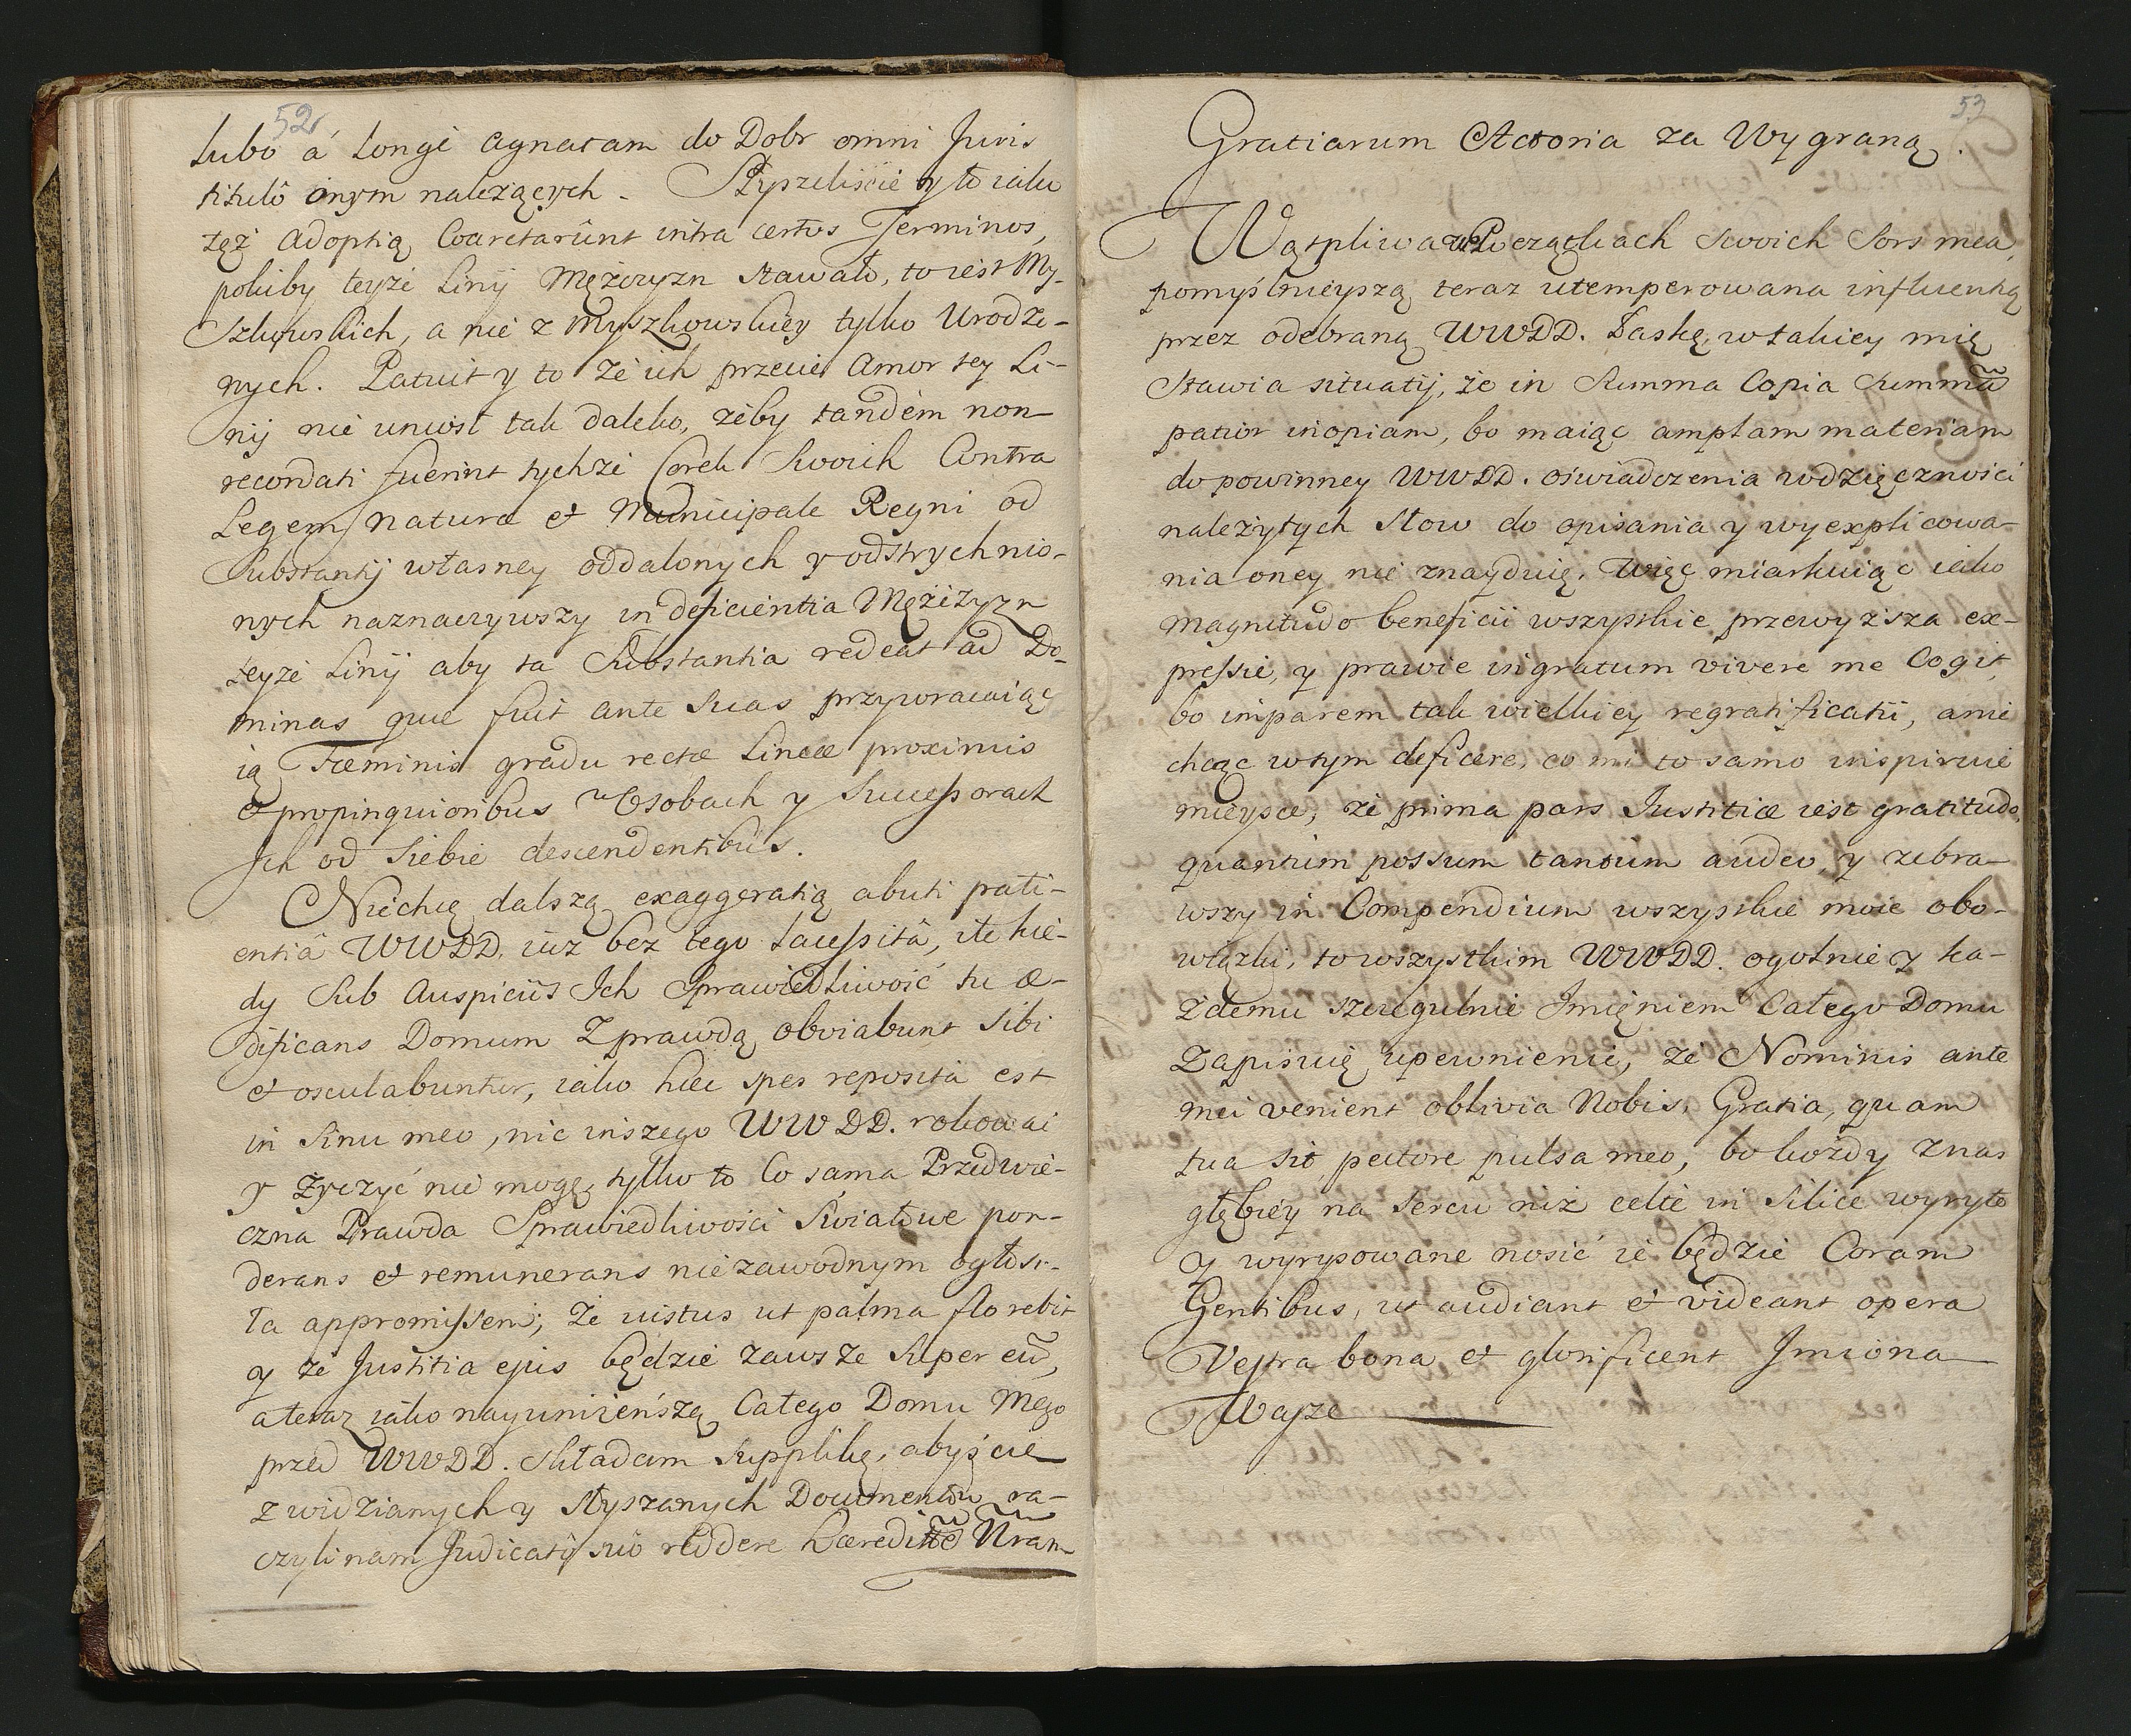 52
lubo á longè agnatam do Dobr omni Juris
titulô onym należących. Słyszeliscie y to iako
tęż Adoptią Coarctarûnt intra certos Terminos,
pokiby teyże Linij Mężczyzn stawało, to iest My-
szkowskich, a nie z Myszkowskiey tylko Urodzo-
nych. Patuit y to że ich przecie Amor tey Li-
nij nie uniosł tak daleko, żeby tandem non
recordati fuerint tychże Corek Swoich Contra
Legem Naturæ et Municipale Regni od
Substantij własney oddalonych y odstrychnio-
nych naznaczywszy in deficientia Mężczyzn
teyże Linij aby ta Substantia redeat ad Do-
minas quæ fuit ante suas przywracaiąc
ią Fæminis gradu rectæ Lineæ proximis
et propinquioribus Osobach y Successorach
Ich od siebie descendentibus.
Niechcę dalszą exaggeratią abuti pati-
entiâ WWDD. iuż bez tego lacessitâ, ile kie-
dy Sub Auspiciis Ich Sprawiedliwość tu æ-
dificans Domum Z prawdą obviabunt sibi
et osculabuntur, iako hæc spes reposita est
in Sinu meo, nic inszego WWDD. rokować
y życzyć nie mogę, tylko to Co sama Przedwie-
czna Prawda Sprawiedliwości Swiatowe pon-
derans et remunerans niezawodnym ogłosi-
ła appromissem; Że iustus ut palma florebit
y że Justitia ejus będzie zawsze super eũ,
a teraz iako nayuniżeńszą Całego Domu Mego
przed WWDD. składam supplikę, abyście
z widzianych y słyszanych Documentow ra-
czyli nam Judicatô suô reddere Hæreditte Nram
53
Gratiarum Actoria za Wygraną.
Wątpliwa w Początkach Swoich Sors mea,
pomyślnieyszą teraz utemperowana influentią
przez odebraną WWDD. Łaskę, w takiey mię
Stawia situatij, że in Summa Copia summã
patior inopiam, bo maiąc amplam materiam
do powinney WWDD. oświadczenia wdzięczności
należytych słow do opisania y wyexplicowa-
nia oney nie znayduię. Więc miarkuiąc iako
Magnitudo beneficii wszystkie przewyzsza ex-
pressie, y prawie ingratum vivere me Cogit,
bo imparem tak wielkiey regratificatii, a nie
chcąc w tym deficere, co mi to samo inspiruie
mieysce, że prima pars Justitiæ iest gratitudo,
quantum possum tantum audeo, y zebra-
wszy in Compendium wszystkie moie obo-
wiązki, to wszystkim WWDD. ogolnie y ka-
żdemu szczegulnie Imięniem Całego Domu
Zapisuię upewnienie, że Nominis ante
mei venient oblivia Nobis, Gratia, quam
tua sit pectore pulsa meo, bo kożdy z nas
głębiey na sercu niż celte in silice wyryto
y wyrysowane nosić ie będzie Coram
Gentibus, ut audiant et videant opera
Vestra bona et glorificent Imiona
Wasze